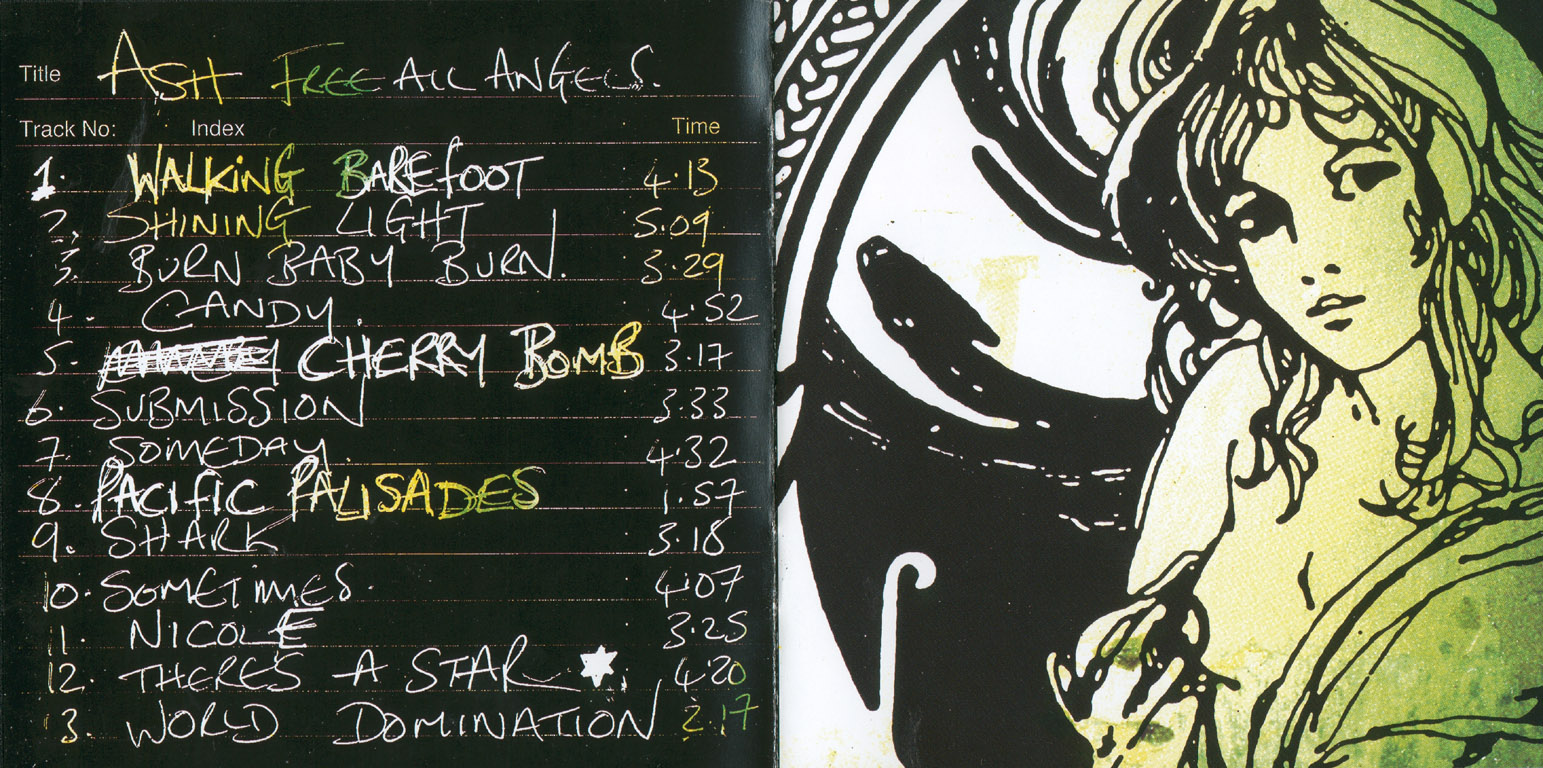 Title ASH FREE ALL ANGELS.
Track No: Index Time
1. WALKiNG BAREfOOT 4.13
2. SHINING LIGHT 5.09
3. BURN BABY BURN. 3.29
4. CANDY. 4.52
5. CHERRY BOMB 3.17
6. SUBMISSION 3.33
7. SOMEDAY. 4.32
8. PACIFIC PALISADES 1.57
9. SHARK 3.18
10. SOMETIMES. 4.07
11. NICOLE 3.25
12. THERE'S A STAR 4.20
13. WORLD DOMINATION 2.17